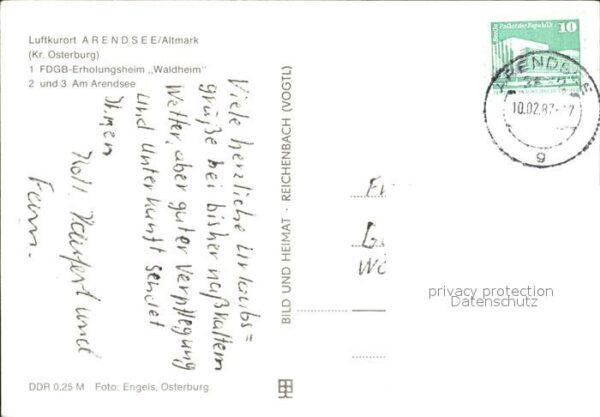 Luftkurort ARENDSEE/Altmark
(Kr. Osterburg)
1 FDGB-Erholungsheim „Waldheim"
2 und 3 Am Arendsee
Viele herzliche Urlaubs=
grüße bei bisher naßkaltem
Wetter, aber guter Verpflegung
und Unterkunft sendet
Ihnen
Fam.
DDR 0,25 M Foto: Engels, Osterburg
BILD UND HEIMAT · REICHENBACH (VOGTL)
Palast der Republik
10
DDR
ARENDSEE
10.02.87
g
privacy protection
Datenschutz